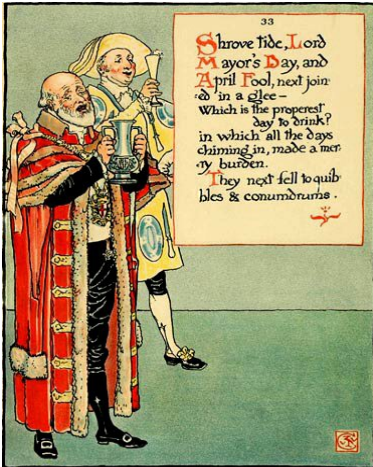 33
Shrove tide, Lord
Mayor's Day, and
April Fool, next join-
ed in a glee –
Which is the properest
day to drink?
in which all the days
chiming in, made a mer-
ry burden.
They next fell to quib-
bles & conumdrums.